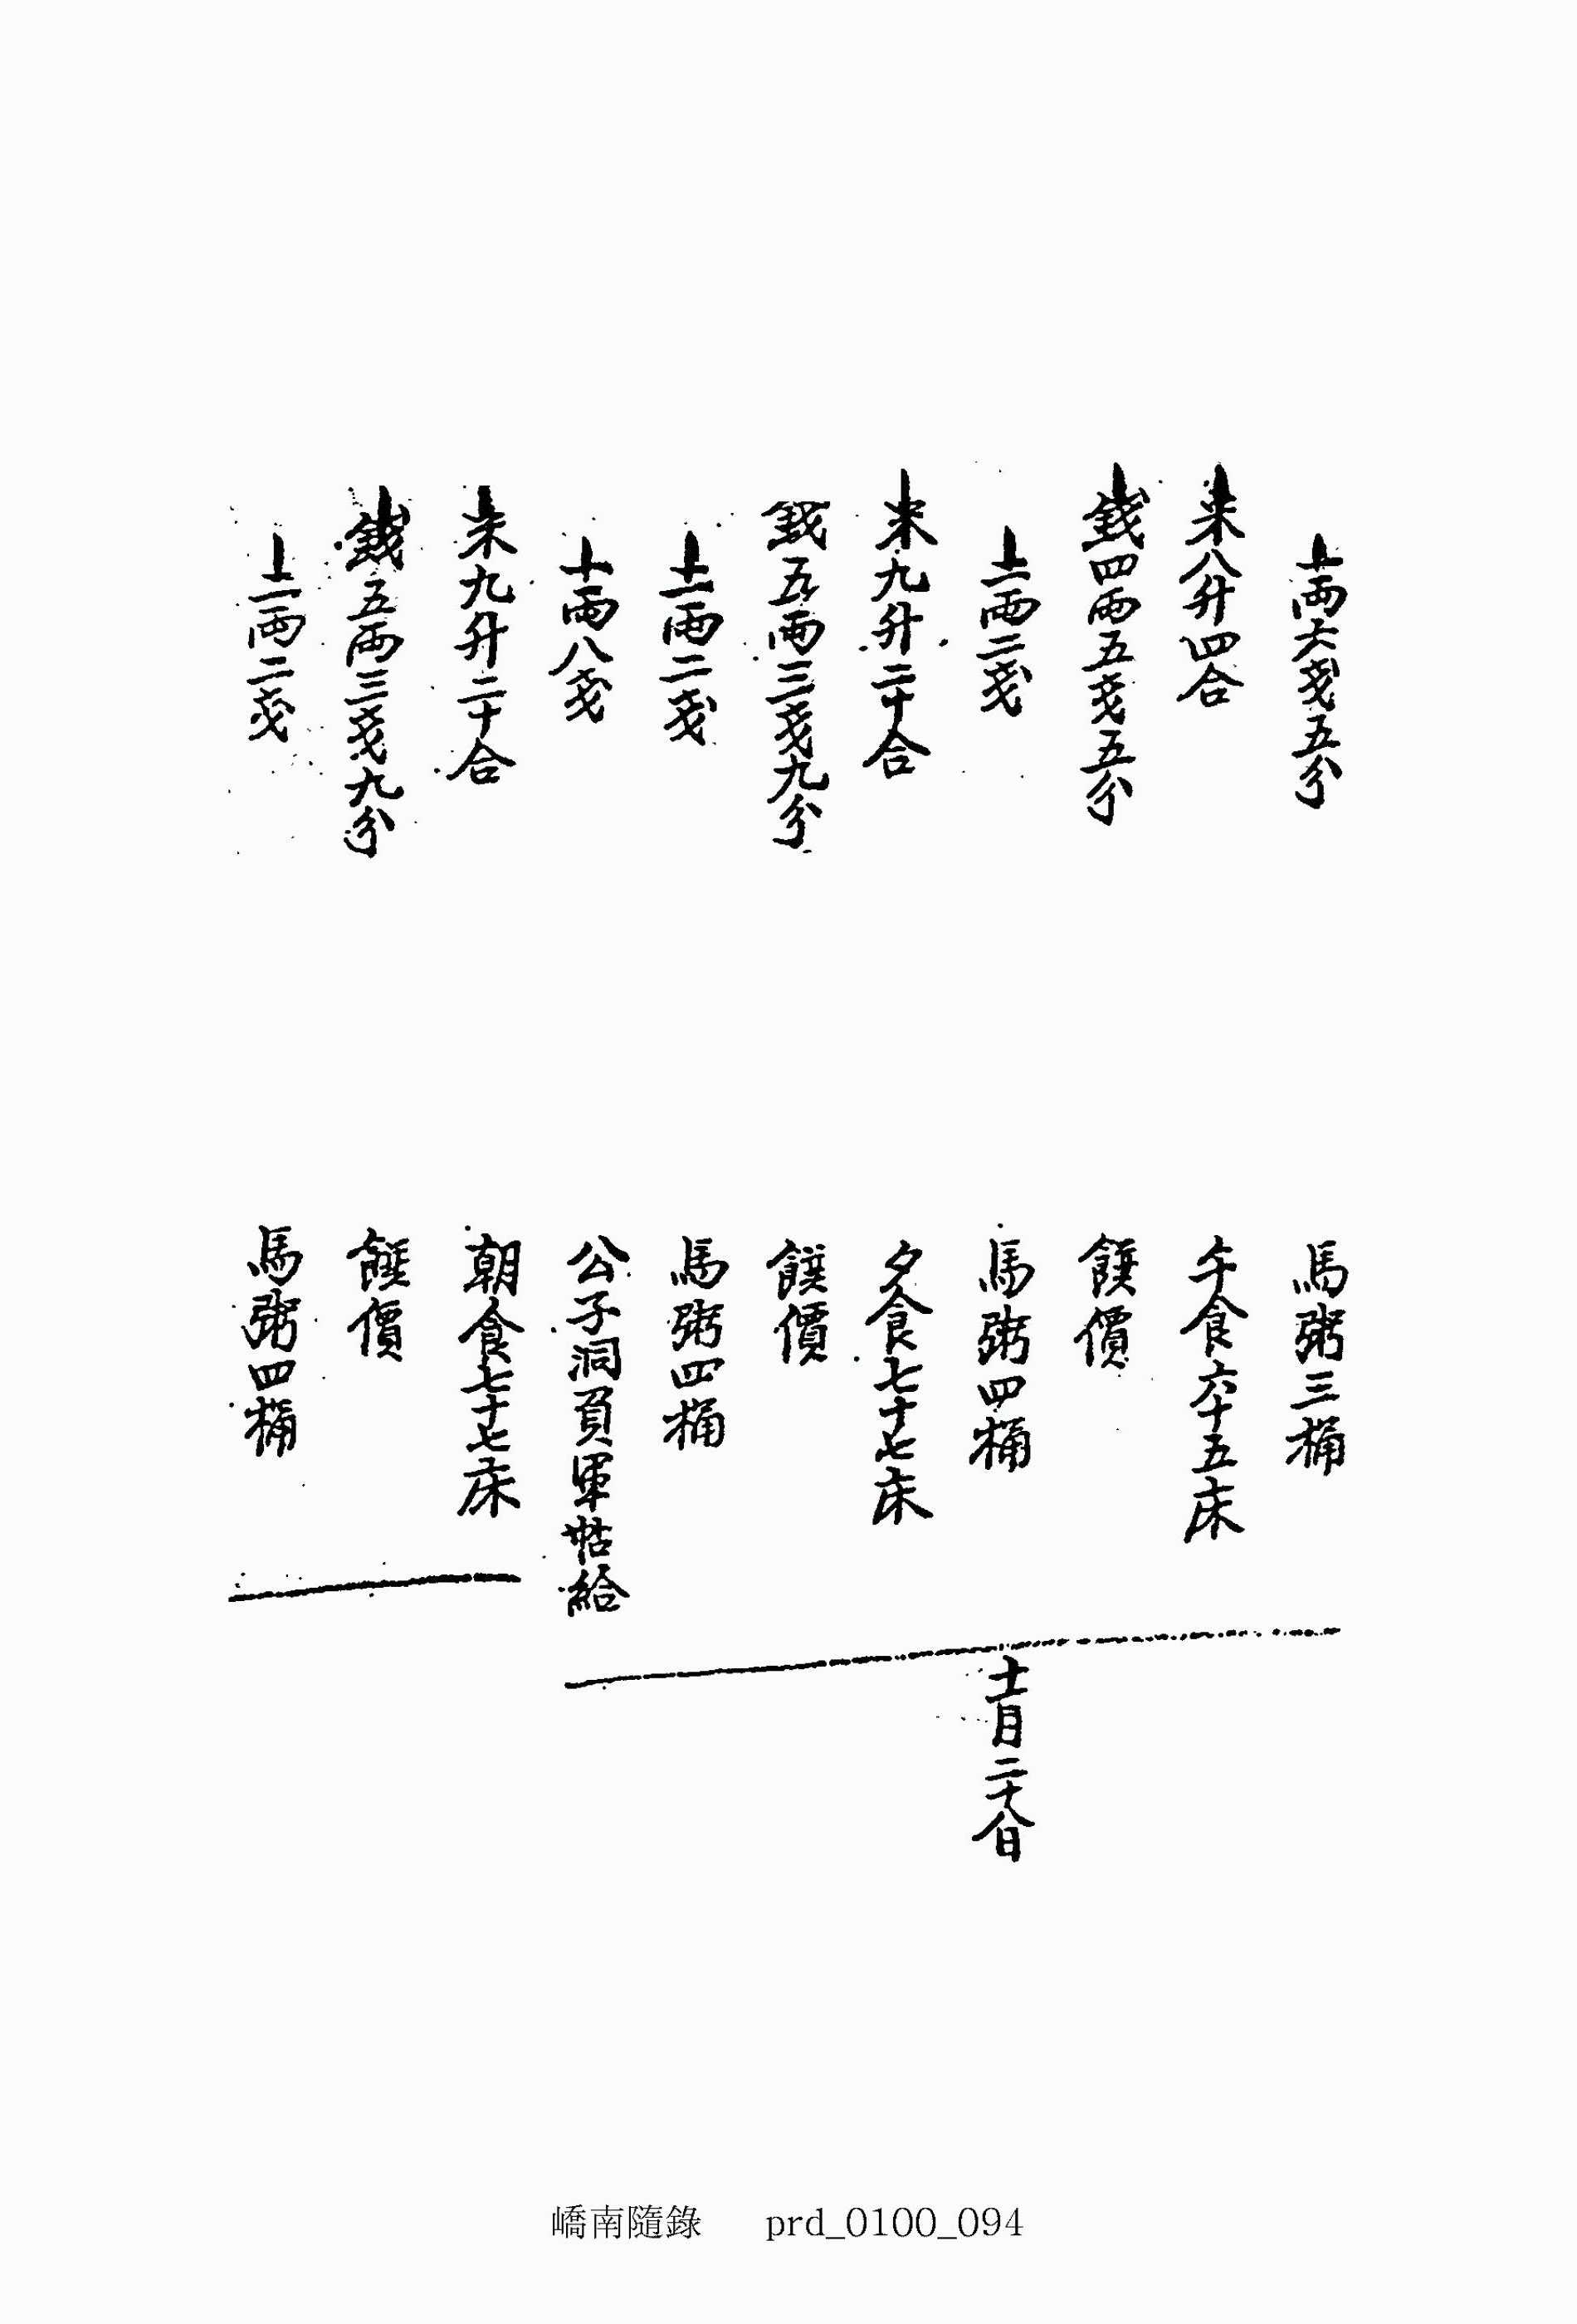 一兩六戔五分 馬粥三桶
米八升四合 午食六十五床
錢四兩五戔五分 饌價
二兩二戔 馬粥四桶 十一月二十八日
米九升二十合 夕食七十七床
錢五兩三戔九分 饌價
二兩二戔 馬粥四桶
一兩八戔 公子洞負軍帖給
米九升二十合 朝食七十七床
錢五兩三戔九分 饌價
二兩二戔 馬粥四桶
嶠南隨錄 prd_0100_094